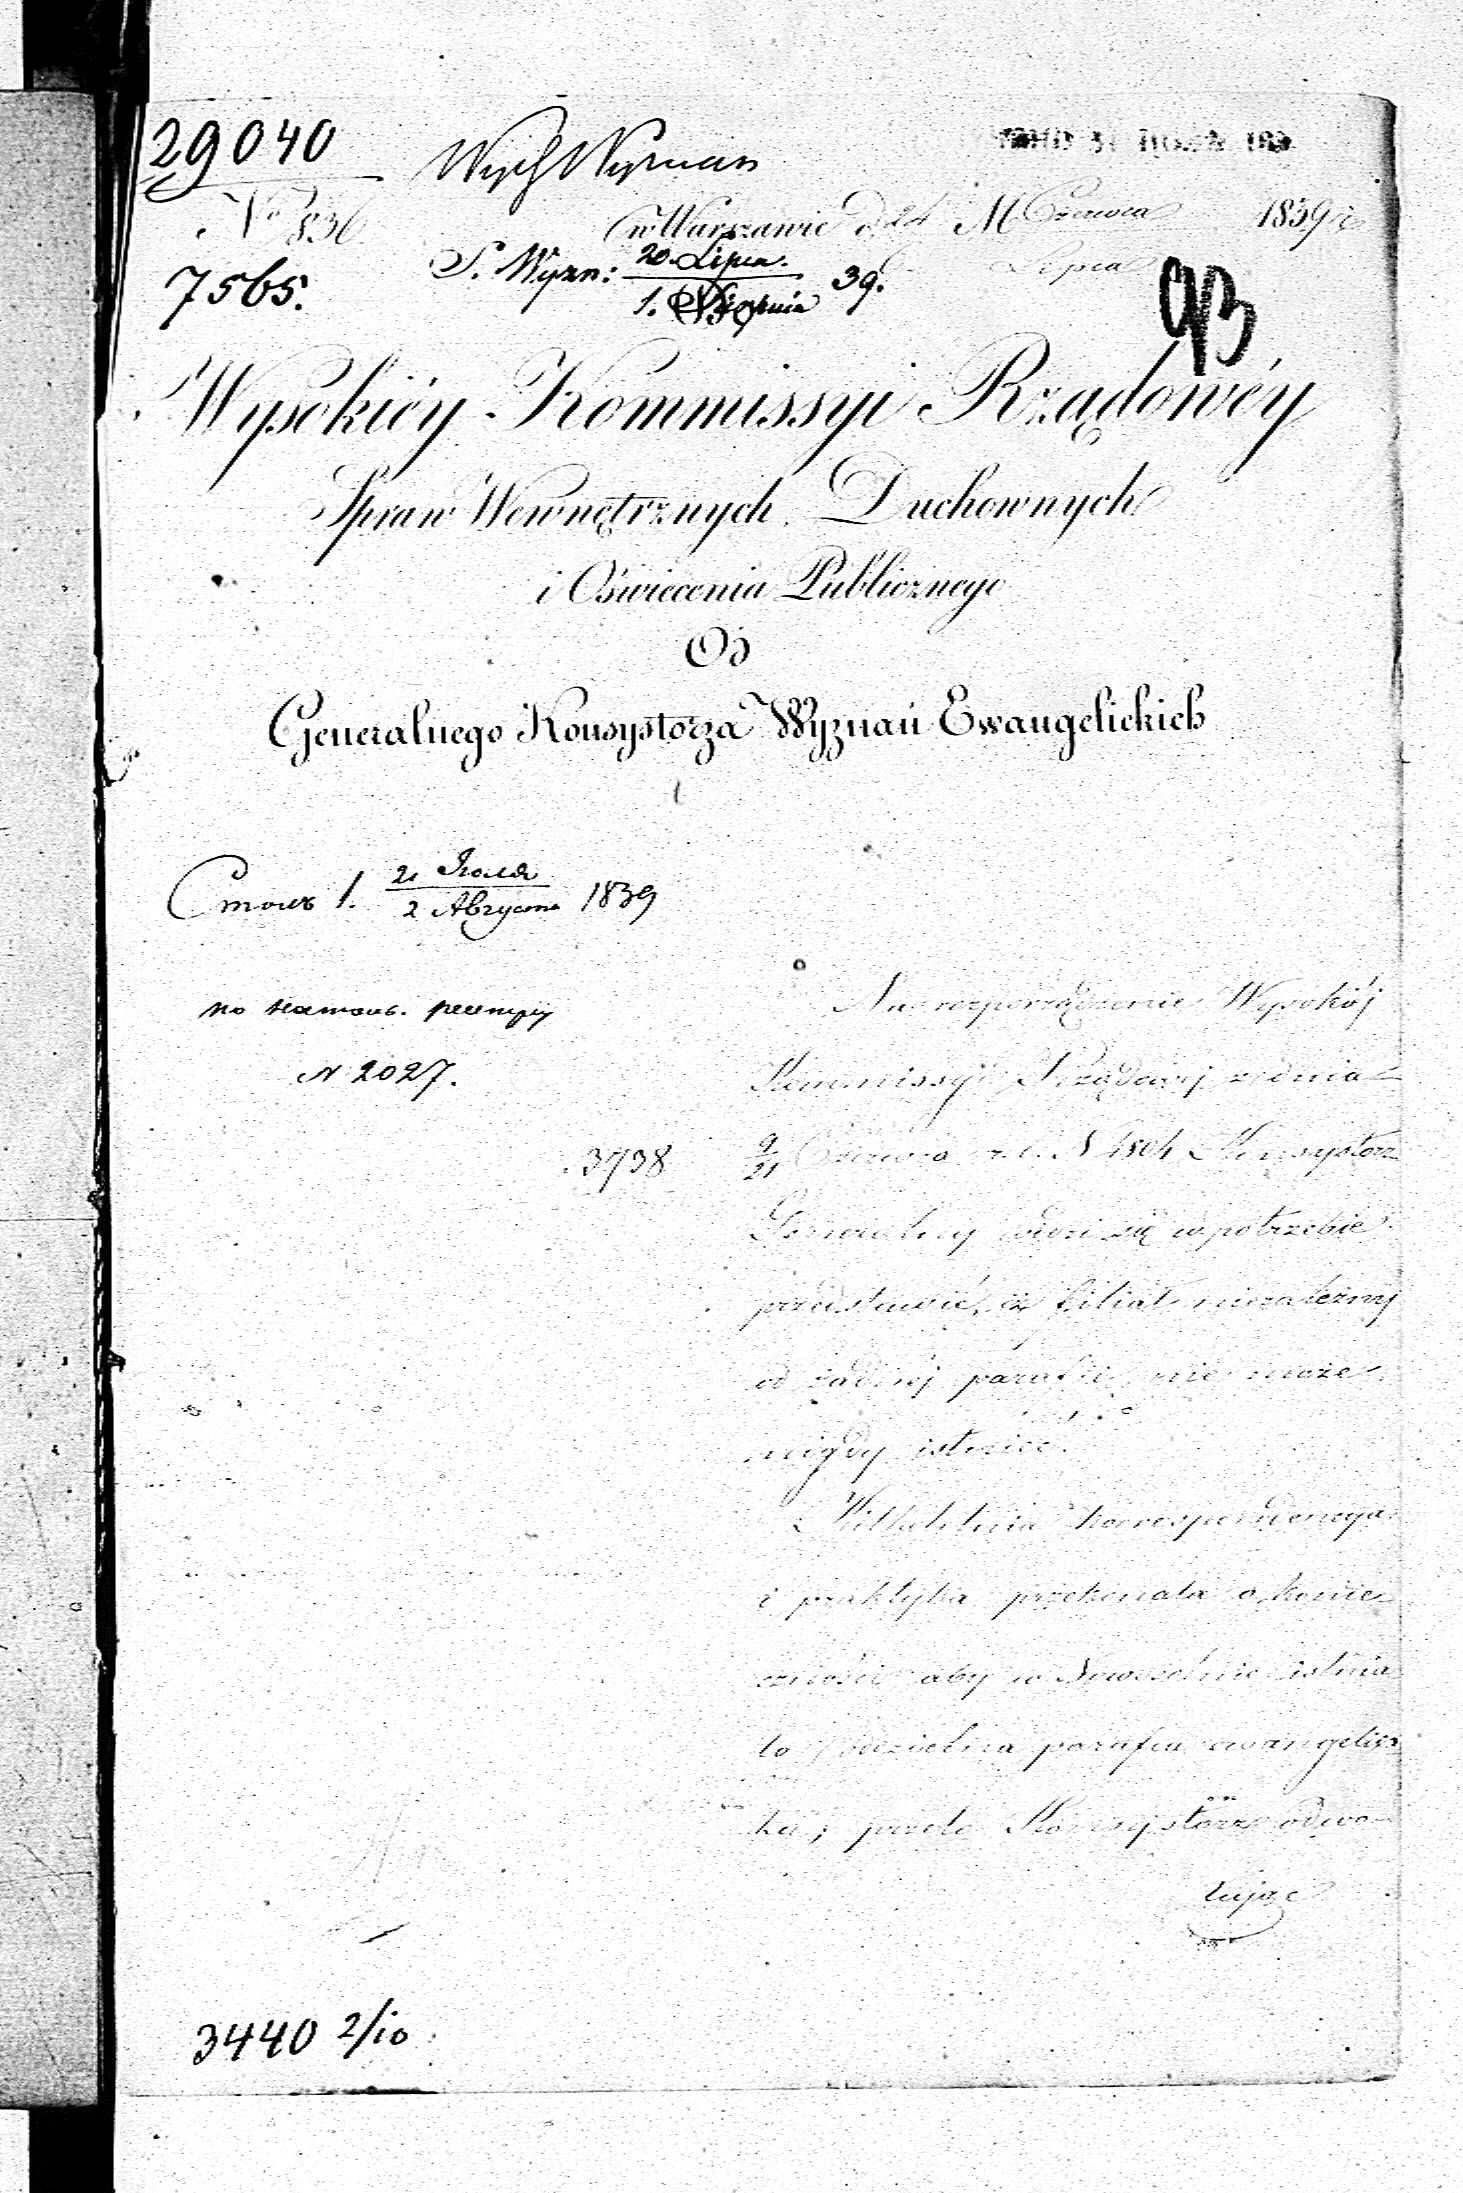 29040
Wydz Wyznań
No 836
w Warszawie d. 24 M Czerwca 1839 r
Lipca
7565.
S. Wyzn: 20 Lipca.
1. Sierpnia 39.
93
Wysokiéy Kommissyi Rządowéy
Spraw Wewnętrznych Duchownych
i Oświecenia Publicznego
Od
Generalnego Konsystorza Wyznań Ewangelickich
Столъ 1. 21 Іюля
2 Августа 1839
по
N 2027.
3738
Na rozporządzenie Wysokiéj
Kommissyi Rządowéj z dnia
9/21 Czerwca r. b. N 1804 Konsystorz
Generalny widzi się w potrzebie
przedstawić, iż filiał niezależny
od żadnéj parafii nie może
nigdy istnieć.
Kilkoletnia korrespondencya
i praktyka przekonała o konie-
czności aby w Nowosolnie istnia
ła oddzielna parafia ewangelic
ka; przeto Konsystorz odwo-
łując
3440 2/10